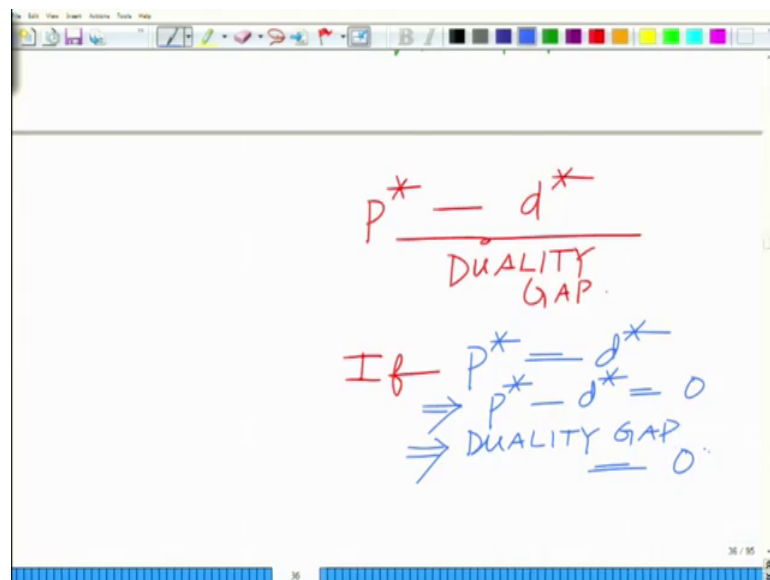 File Edit View Insert Actions Tools Help
B I
P* — d*
DUALITY
GAP.
If P* = d*
⇒ P* — d* = 0
⇒ DUALITY GAP
= 0
36 / 95
36